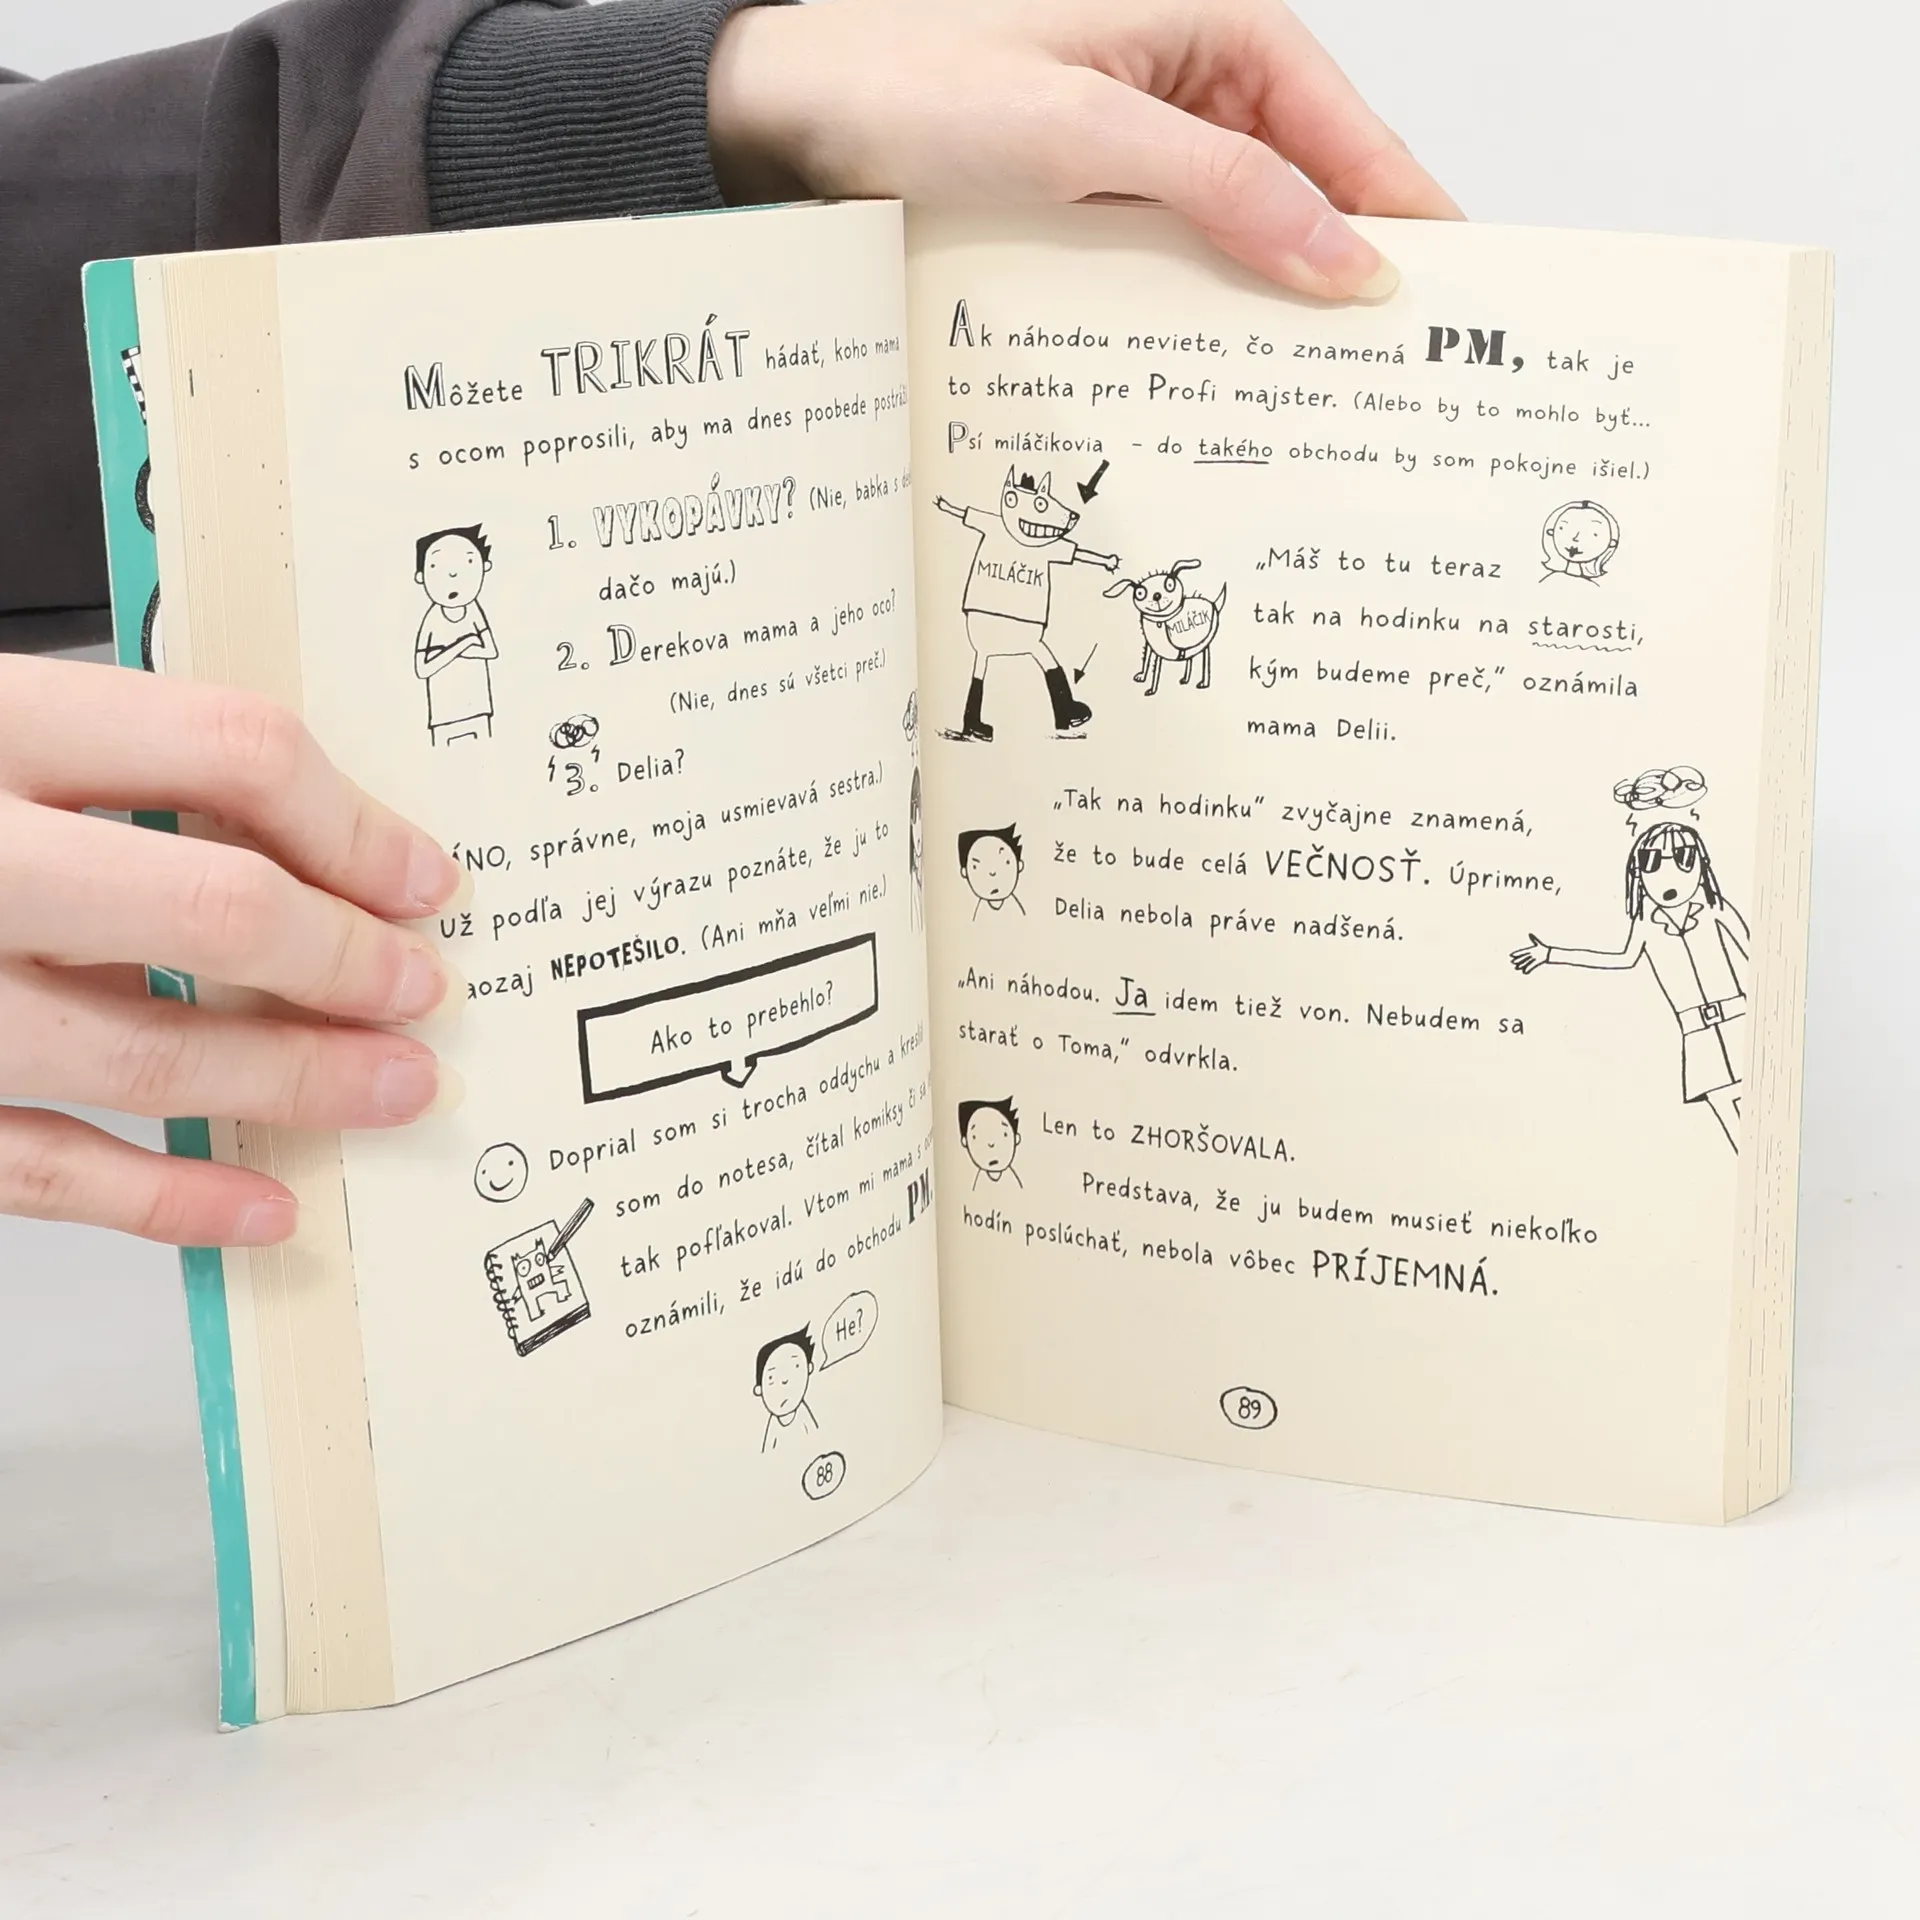 Môžete TRIKRÁT hádať, koho mama
s ocom poprosili, aby ma dnes poobede
1. VYKOPÁVKY? (Nie, babka s
dačo majú.)
2. Derekova mama a jeho oco?
(Nie, dnes sú všetci preč.)
3. Delia?
ÁNO, správne, moja usmievavá sestra.)
Už podľa jej výrazu poznáte, že ju to
NEPOTEŠILO. (Ani mňa veľmi nie.)
Ako to prebehlo?
Doprial som si trocha oddychu a
som do notesa, čítal komiksy či sa
tak pofľakoval. Vtom mi mama s
oznámili, že idú do obchodu PM.
He?
88
Ak náhodou neviete, čo znamená PM, tak je
to skratka pre Profi majster. (Alebo by to mohlo byť...
Psí miláčikovia – do takého obchodu by som pokojne išiel.)
MILÁČIK
MILÁČIK
„Máš to tu teraz
tak na hodinku na starosti,
kým budeme preč,“ oznámila
mama Delii.
„Tak na hodinku“ zvyčajne znamená,
že to bude celá VEČNOSŤ. Úprimne,
Delia nebola práve nadšená.
„Ani náhodou. Ja idem tiež von. Nebudem sa
starať o Toma,“ odvrkla.
Len to ZHORŠOVALA.
Predstava, že ju budem musieť niekoľko
hodín poslúchať, nebola vôbec PRÍJEMNÁ.
89